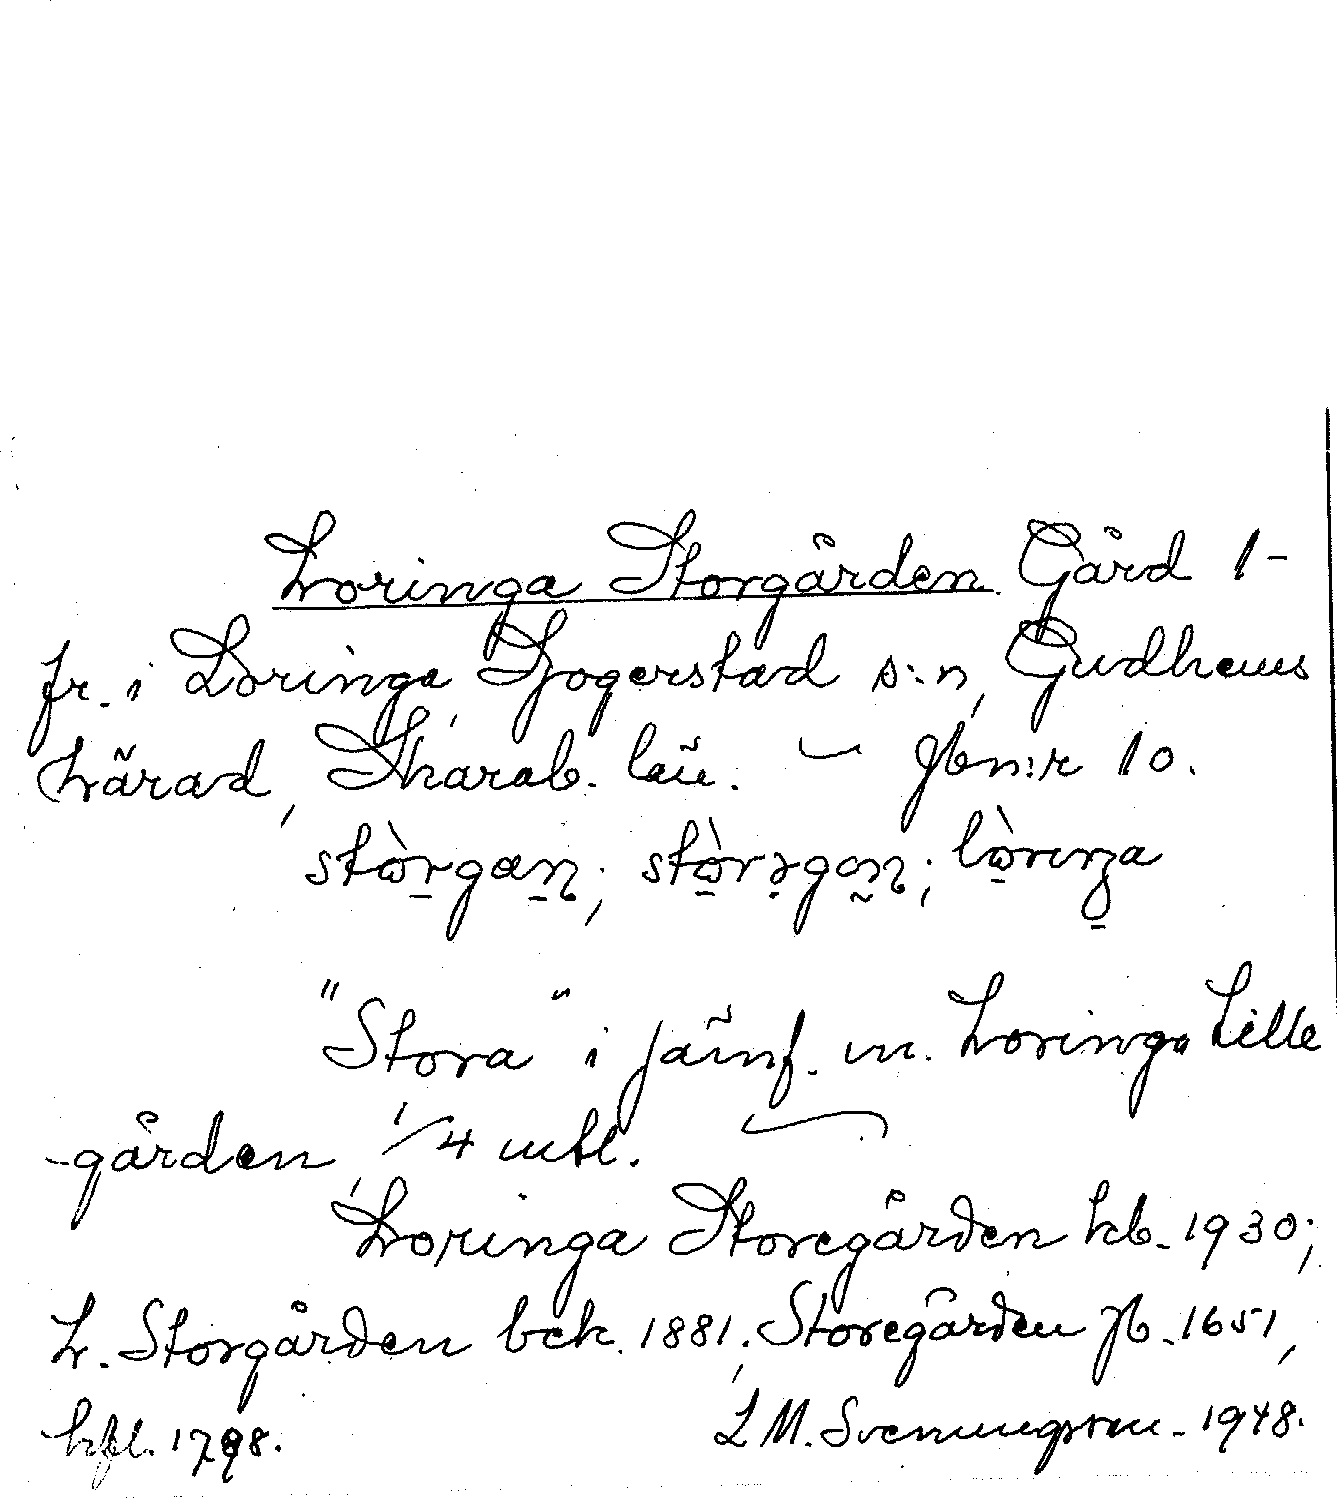 Loringa Storgården. Gård 1-
fr. i Loringa, Jogerstad s:n, Gudhems
härad, Skarab. län. — Jbn:r 10.
stòrgan; stòrəgɑn; lòriŋa
"Stora" i jämf. m. Loringa Lille
-gården, 1/4 mtl.
Loringa Storegården kb. 1930;
L. Storgården bck. 1881; Storegården jb. 1651,
hfl. 1798. L M. Svenungsson. 1948.